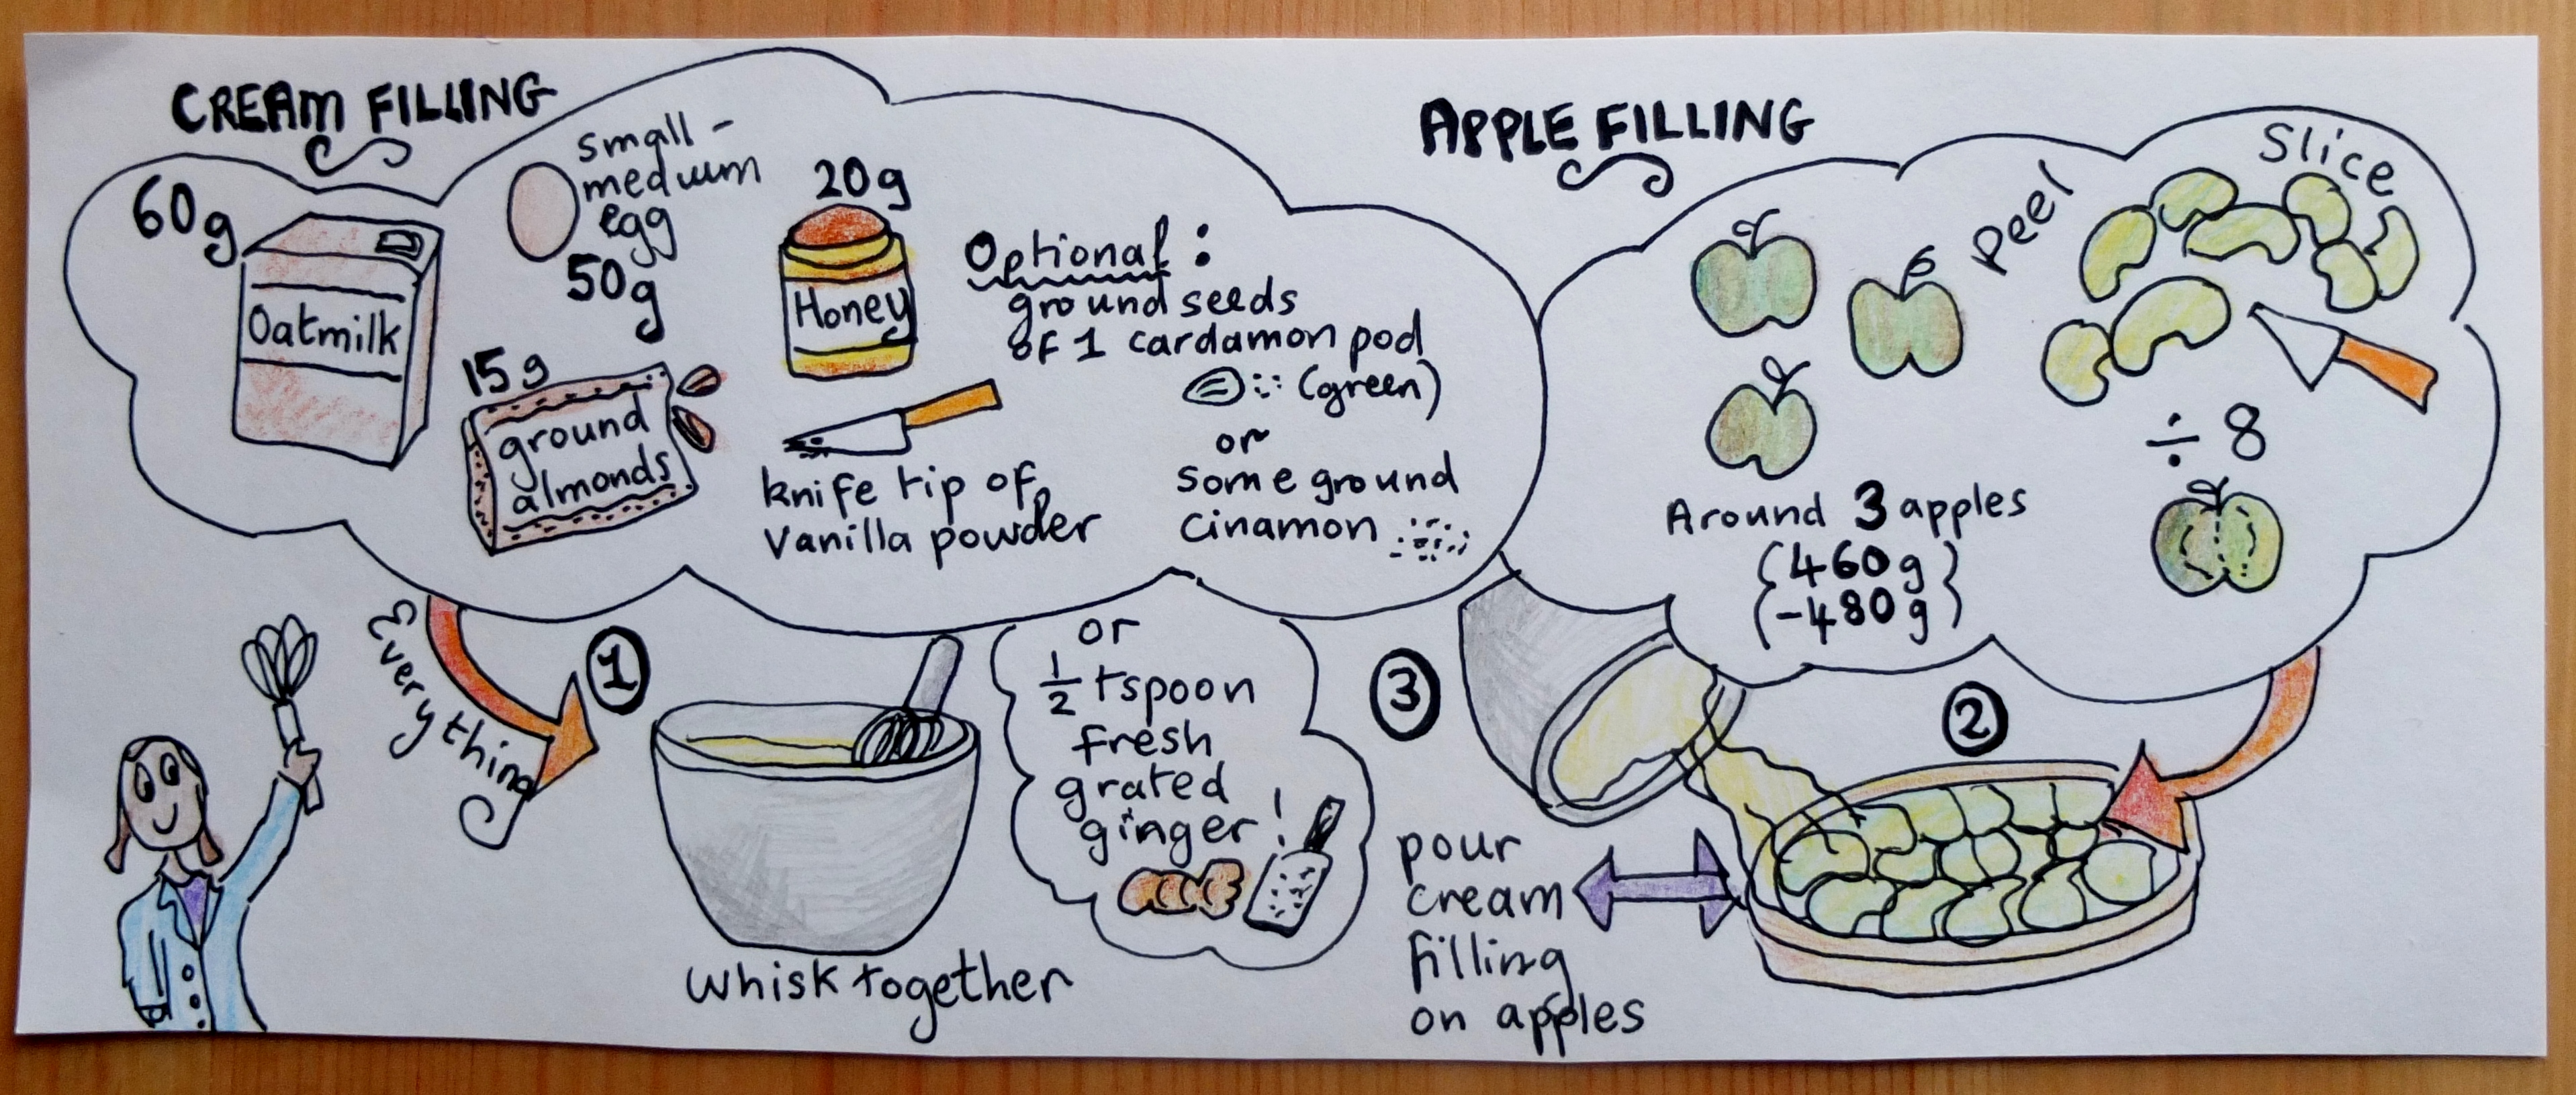 CREAM FILLING
60g
Oatmilk
small -
medium
egg
50g
15g
ground
almonds
20g
Honey
knife tip of
vanilla powder
Optional :
ground seeds
of 1 cardamon pod
(green)
or
some ground
cinamon
or
1/2 tspoon
fresh
grated
ginger!
Everything
1
whisk together
APPLE FILLING
Peel
Slice
÷ 8
Around 3 apples
(460g)
(-480g)
2
3
pour
cream
filling
on apples